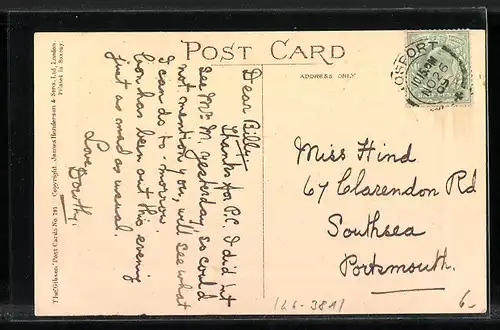 POST CARD
ADDRESS ONLY
Dear Billy,
Thanks for P.C. I did not
see Mr M. yesterday, so could
not mention you, will see what
I can do to-morrow.
has been out this evening
just as mad as usual.
Love
Dorothy.
The "Gibson" Post Cards No 791 Copyright. James Henderson & Sons, Ltd, London.
Printed in Saxony.
GOSPORT
NO 26
Miss Hind
67 Clarendon Rd
Southsea
Portsmouth.
6-